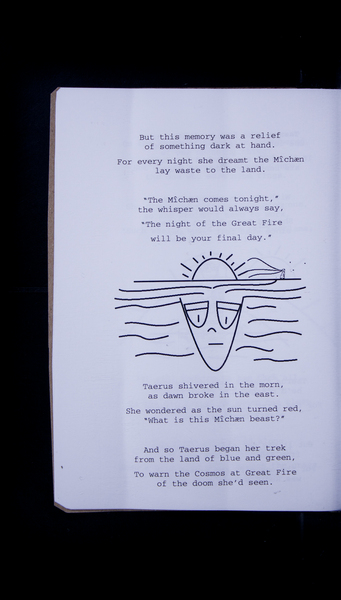 But this memory was a relief
of something dark at hand.
For every night she dreamt the Mîchæn
lay waste to the land.
"The Mîchæn comes tonight,"
the whisper would always say,
"The night of the Great Fire
will be your final day."
Taerus shivered in the morn,
as dawn broke in the east.
She wondered as the sun turned red,
"What is this Mîchæn beast?"
And so Taerus began her trek
from the land of blue and green,
To warn the Cosmos at Great Fire
of the doom she'd seen.